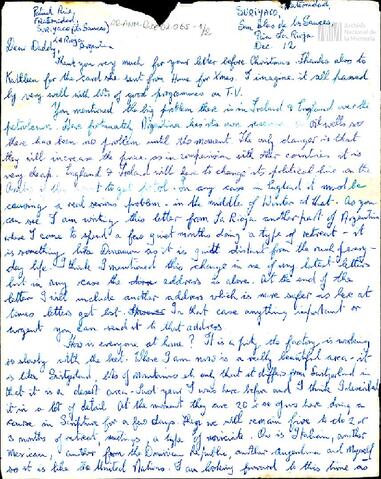 Patrick Rice,
Fraternidad,
SURIYACO (San Blas de los Sauces)
La Rioja
Argentina
SURIYACO, Fraternidad,
San Blas de los Sauces,
La Rioja
Dec 12
Archivo
Nacional de la
Memoria
Dear Daddy,
Thank you very much for your letter before Christmas. Thanks also to
Kathleen for the card she sent from Home for Xmas. I imagine it all passed
by very well with lots of good programmes on T.V.
You mentioned the big problem there is in Ireland & England over the
petroleum. Here fortunately Argentina has its own oil wells so
there has been no problem until the moment. The only danger is that
they will increase the price, as in comparison with other countries it is
very cheap. England & Ireland will have to change its political line on the
in any case in England it must be
causing a real serious problem - in the middle of Winter at that. As you
can see I am writing this letter from La Rioja another part of Argentina
where I came to spend a few quiet months doing a type of retreat - it
is something like as it is quite distant from the rush of every-
day life. I think I mentioned this change in one of my latest letters
but in any case the address is above. At the end of the
letter I will include another address which is more safer as here at
times letters get lost. In that case anything important or
urgent you can send it to that address.
How is everyone at home? It is a pity the factory is working
so slowly with the beet. Where I am now is a really beautiful area - it
is like Switzerland, lots of mountains and that it differs from Switzerland in
that it is a desert area. Last year I was here before and I think I described
it in a lot of detail. At the moment they are 20 of us here doing a
course in Scripture for a few days. we will remain five to do 2 or
3 months of retreat, a type of novicite. One is Italian, another
Mexican, another from the Dominican Republic another Argentinian and Myself
so it is like the United Nations. I am looking forward to this time as